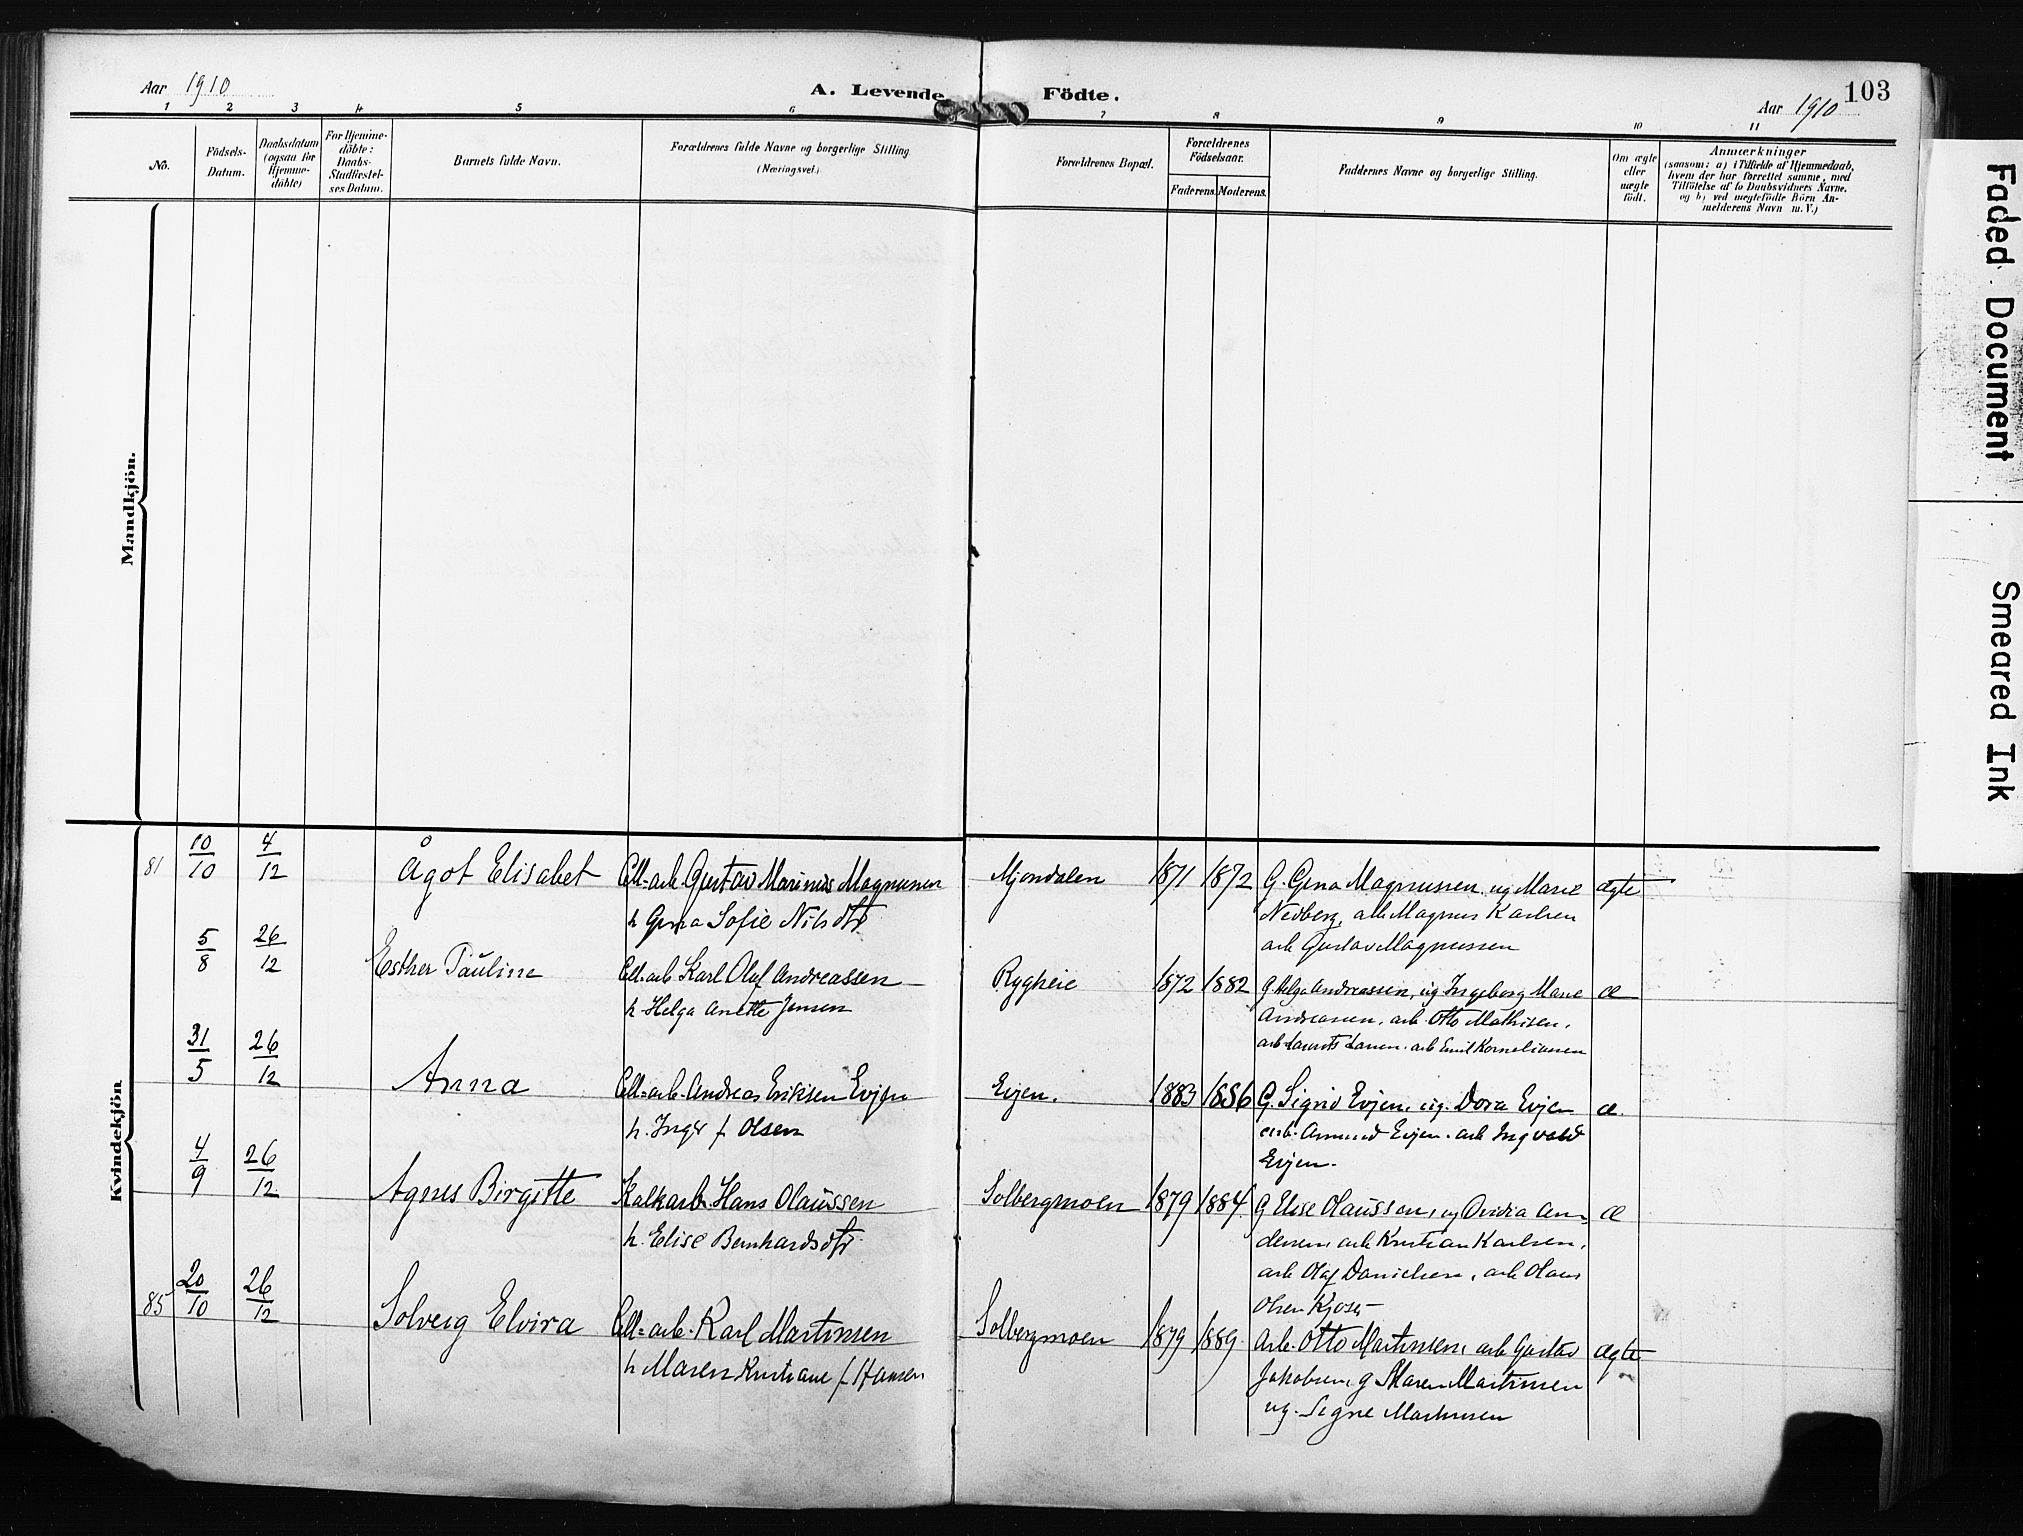 Aar 1910
A. Levende Födte.
103
Aar 1910
1 2 3 4 5 6 7 8 9 10 11
No.
Födsels-
Datum.
Daabsdatum
(ogsaa for
Hjemme-
döbte)
For Hjemme-
döbte:
Daabs-
Stadfæstel-
ses Datum.
Barnets fulde Navn.
Forældrenes fulde Navne og borgerlige Stilling
(Næringsvei.)
Forældrenes Bopæl.
Forældrenes
Födselsaar.
Faderens. Moderens.
Faddernes Navne og borgerlige Stilling.
Om ægte
eller
uægte
födt.
Anmærkninger
(saasom: a) i Tilfælde af Hjemmedaab,
hvem der har forrettet samme, med
Tilföielse af to Daabsvidners Navne.
og b) ved uægtefödte Börn An-
melderens Navn m. V.)
Mandkjön.
Kvindekjön.
81 10/10 4/12 Ågot Elisabet Cell=arb. Gustav Marinus Magnussen Mjøndalen 1871 1872 G. Gina Magnussen, ug Marie ægte
h Gina Sofie Nilsdtr Nedberg, arb Magnus Karlsen
arb Gustav Magnussen
5/8 26/12 Esther Pauline Cell-arb. Karl Olaf Andreassen Rygheie 1872 1882 G Helga Andreassen, ug Ingeborg Marie æ
h. Helga Anette Jensen Andreassen, arb. Otto Mathisen,
arb Laurits Larsen. arb Emil Korneliussen
31/5 26/12 Anna Cell=arb. Andreas Eriksen Evjen Evjen. 1883 1886 G. Sigrid Evjen, ug. Dora Evjen æ.
h. Inger f. Olsen arb. Amund Evjen. arb Ingvald
Evjen.
4/9 26/12 Agnes Birgitte Kalkarb. Hans Olaussen Solbergmoen 1879 1884 G Elise Olaussen, ug Ovidia An= æ
h. Elise Bernhardsdtr dersen, arb Kristian Karlsen,
arb Olaf Danielsen, arb Olaus
Olsen Kjøsy
85 20/10 26/12 Solveig Elvira Cell=arb. Karl Martinsen Solbergmoen 1879 1889 Arb. Otto Martinsen, arb Gustav ægte
h Maren Kristiane f. Hansen Jakobsen, g Maren Martinsen
ug. Signe Martinsen
Faded Document
Smeared Ink